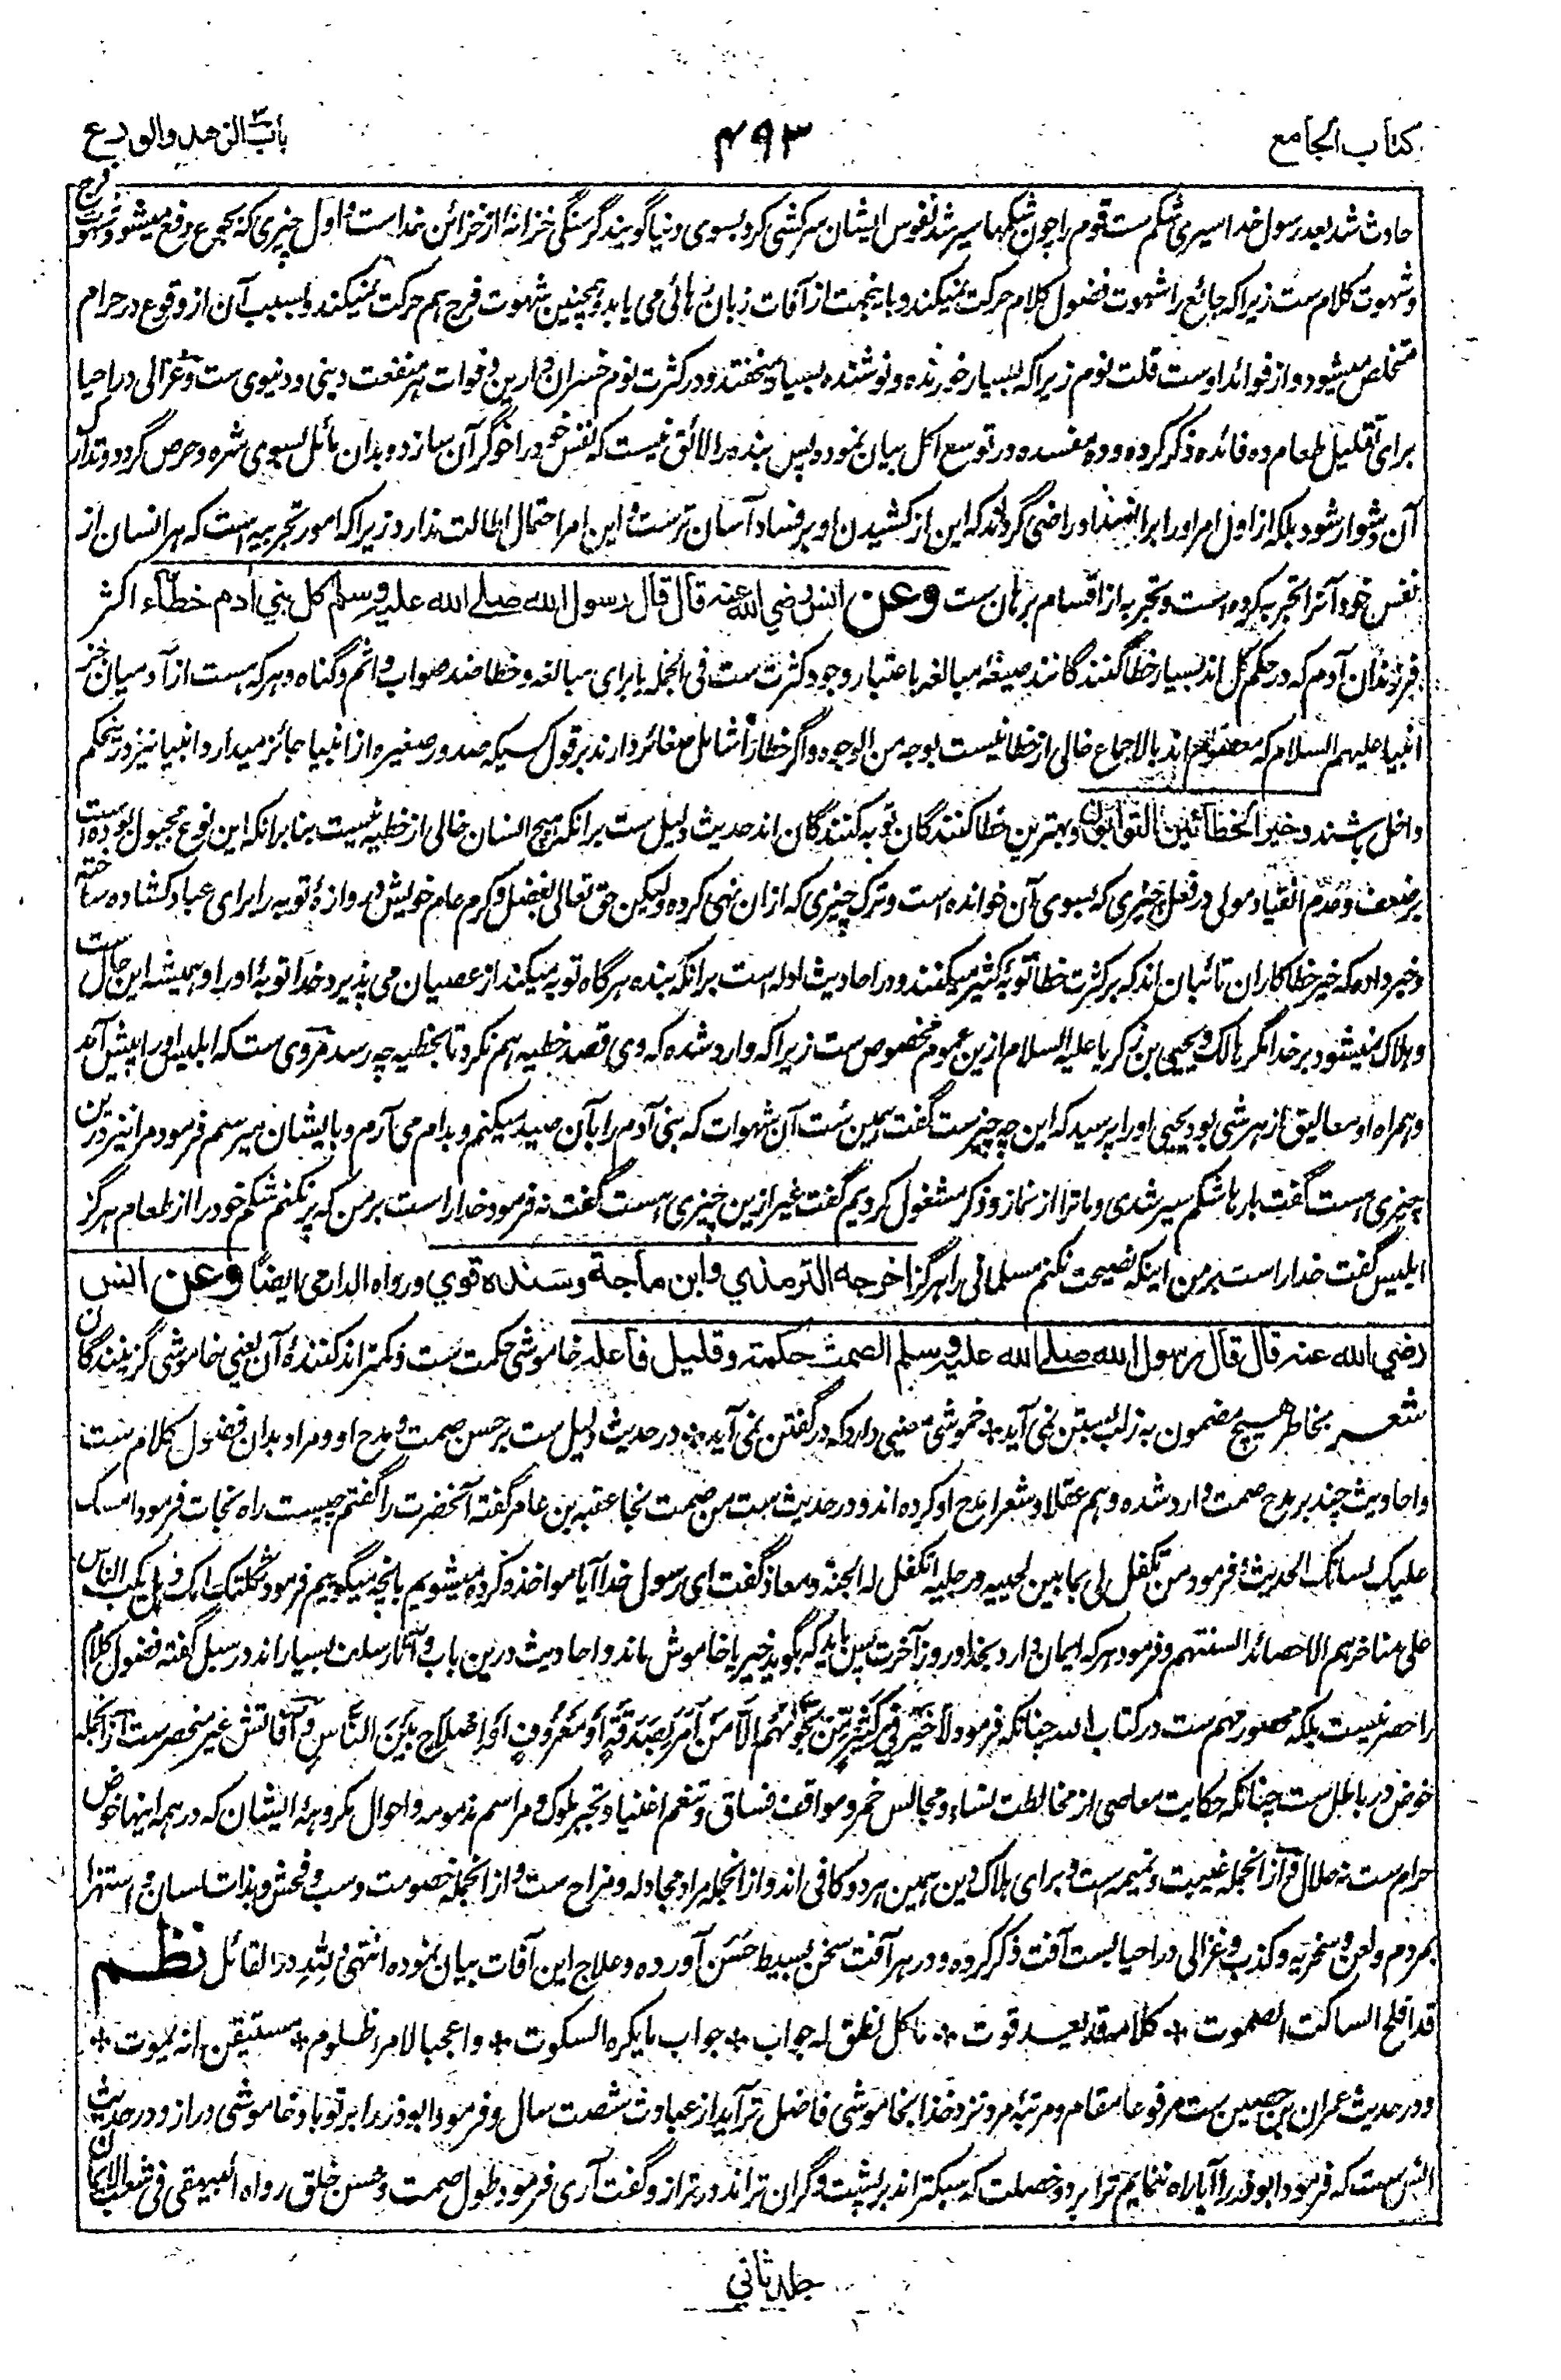 کتاب الجامع
۴۹۳
باب الزهد والورع
حادث شد بعد رسول خدا سیری شکم ست قوم را چون شکمها سیر شد نفوس ایشان سرکشی کرد بسوی دنیا گویند گرسنگی خزانه از خزائن خداست و اول چیزی که بجوع دفع میشود شهوت فرج
و شهوت کلام ست زیرا که جائع را شهوت فضول کلام حرکت نمیکند و باینجهت از آفات زبان رهائی می یابد و همچنین شهوت فرج هم حرکت نمیکند و بسبب آن از وقوع در حرام
متخلص میشود و از فوائد اوست قلت نوم زیرا که بسیار خورنده و نوشنده بسیار میخفتد و در کثرت نوم خسران دارین و فوات هر منفعت دینی و دنیوی ست و غزالی در احیا
برای تقلیل طعام ده فائده ذکر کرده و ده مفسده در توسع اکل بیان نموده پس بنده را لائق نیست که نفس خود را خوگر آن سازد و بدان مائل بسوی شره و حرص گردد و تدارک
آن دشوار شود بلکه از اول امر او را براقتصاد راضی گرداند که این از کشیدن او بر فساد آسان ترست و این امر احتمال اطالت ندارد زیرا که امور تجربیه است که هر انسان از
نفس خود آنرا تجربه کرده است و تجربه از اقسام برهان ست وعن انس رضي الله عنه قال قال رسول الله صلے الله علیه وسلم کل بني آدم خطاّء اکثر
فرزندان آدم که در حکم کل اند بسیار خطا کنندگانند صیغهٔ مبالغه باعتبار وجود کثرت ست فی الجمله یا برای مبالغه و خطا ضد صواب و اثم و گناه و هر که هست از آدمیان جز
انبیا علیهم السلام که معصوم اند بالاجماع خالی از خطا نیست بوجه من الوجوه و اگر خطا را شامل صغائر دارند بر قول کسیکه صدور صغیره از انبیا جائز میدارد انبیا نیز درینحکم
داخل باشند وخیر الخطائین التوابون و بهترین خطا کنندگان توبه کنندگان اند حدیث دلیل ست برانکه هیچ انسان خالی از خطیه نیست بنا برانکه این نوع مجبول بوده است
بر ضعف و عدم انقیاد مولی در فعل چیزی که بسوی آن خوانده است و ترک چیزی که ازان نهی کرده و لیکن حق تعالی بفضل و کرم عام خویش دروازهٔ توبه را برای عباد کشاده ساخته
و خبر داده که خیر خطا کاران تائبان اند که بر کثرت خطا توبهٔ کثیر میکنند و در احادیث ادله است برانکه بنده هر گاه توبه میکند از عصیان می پذیرد خدا توبهٔ او را و همیشه این حال ست
و هلاک نمیشود بر خدا مگر هالک و یحیی بن زکریا علیه السلام ازین عموم مخصوص ست زیرا که وارد شده که وی قصد خطیه هم نکرد تا بخطیه چه رسد مروی ست که ابلیس او را پیش آمد
و همراه او معالیق از هر شی بود یحیی او را پرسید که این چه چیزست گفت همین ست آن شهوات که بنی آدم را بآن صید میکنم و بدام می آرم و بایشان میرسم فرمود مرا نیز درین
چیزی هست گفت بارها شکم سیر شدی و ما ترا از نماز و ذکر مشغول کردیم گفت غیر ازین چیزی هست گفت نه فرمود خدا راست بر من که پر نکنم شکم خود را از طعام هرگز
ابلیس گفت خدا راست بر من اینکه نصیحت نکنم مسلمانی را هرگز اخرجه الترمذي وابن ماجة وسنده قوي ورواه الدارمي ایضا وعن انس
رضي الله عنه قال قال رسول الله صلے الله علیه وسلم الصمت حکمة وقلیل فاعله خاموشی حکمت ست و کمتر اند کنندهٔ آن یعنی خاموشی گزینندگان
شعر بخاطر هیچ مضمون به ز لب بستن نمی آید * خموشی معنیی دارد که در گفتن نمی آید * در حدیث دلیل ست بر حسن صمت و مدح او و مراد بدان فضول کلام ست
و احادیث چند بر مدح صمت وارد شده و هم عقلا و شعرا مدح او کرده اند و در حدیث ست من صمت نجا عقبه بن عامر گفته آنحضرت را گفتم چیست راه نجات فرمود امسک
علیک لسانک الحدیث و فرمود من تکفل لی بما بین لحییه و رجلیه اتکفل له الجنة و معاذ گفت ای رسول خدا آیا مواخذه کرده میشویم بانچه میگوییم فرمود ثکلتک امک و هل یکب الناس
علی مناخرهم الا حصائد السنتهم و فرمود هر که ایمان دارد بخدا و روز آخرت پس باید که بگوید خیر یا خاموش ماند و احادیث درین باب و آثار سلف بسیار اند در سبل گفته فضول کلام
را حصر نیست بلکه محصور مهم ست در کتاب الله چنانکه فرمود لَا خَیْرَ فِي کَثِیْرٍ مِّن نَّجْوٰهُمْ اِلَّا مَنْ اَمَرَ بِصَدَقَةٍ اَوْ مَعْرُوفٍ اَوْ اِصْلَاحٍ بَیْنَ النَّاسِ و آفاتش غیر منحصرست ازانجمله
خوض در باطل ست چنانکه حکایت معاصی از مخالطت نساء و مجالس خمر و مواقف فساق و تنعم اغنیا و تجبر ملوک و مراسم مذمومه و احوال مکروههٔ ایشان که در همه اینها خوض
حرام ست نه حلال و ازانجمله غیبت و نمیمه است و برای هلاک دین همین هر دو کافی اند و ازانجمله مراد مجادله و مزاح ست و ازانجمله خصومت و سب و فحش و بذات لسان و استهزا
بمردم و لعن و سخریه و کذب و غزالی در احیا بست آفت ذکر کرده و در هر آفت سخن بسیط حسن آورده و علاج این آفات بیان نموده انتهی و للّه در القائل نظم
قد افلح الساکت الصموت * کلامه قد یعد قوت * ما کل نطق له جواب * جواب ما یکره السکوت * واعجبا لامرء ظلوم * مستیقن انه یموت *
و در حدیث عمران بن حصین ست مرفوعا مقام و مرتبهٔ مرد نزد خدا بخاموشی فاضل تر آید از عبادت شصت سال و فرمود ابوذر را بر تو باد خاموشی دراز و در حدیث
انس ست که فرمود ابوذر را آیا راه ننمایم ترا بر دو خصلت که سبکتر اند بر پشت و گران تر اند در ترازو گفت آری فرمود طول صمت و حسن خلق رواه البیهقی فی شعب الایمان
جلد ثاني